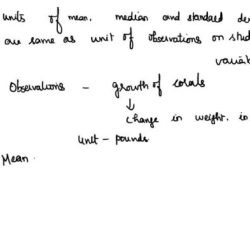 units of mean, median and standard de
are same as unit of observations on stud
variab
Observations - growth of corals
↓
change in weight. in
unit - pounds
Mean.